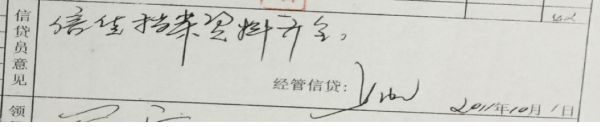 信贷员意见
信贷档案资料齐全。
经管信贷:
2011年10月1日
领